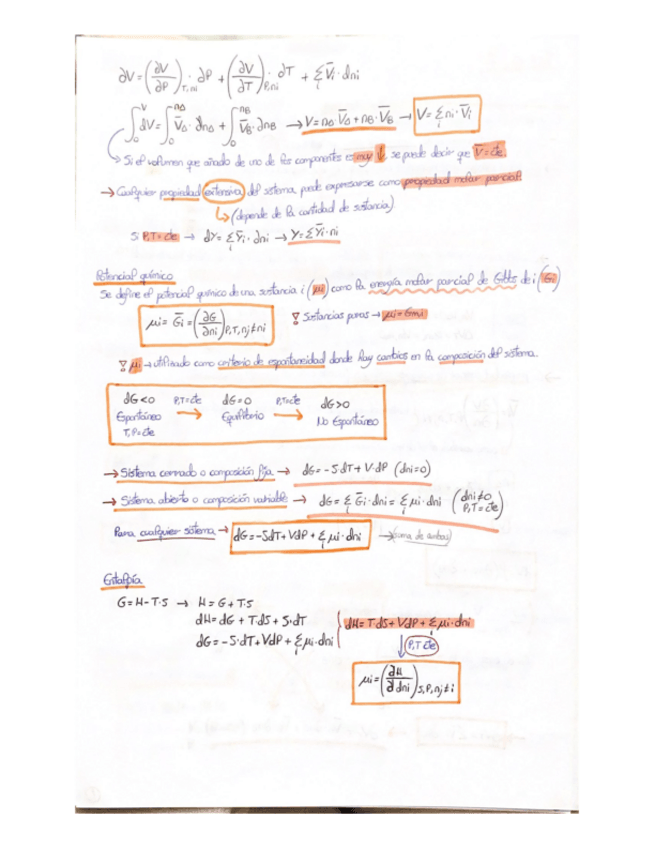 ∂V = (∂V/∂P)T,ni · ∂P + (∂V/∂T)P,ni · ∂T + Σi V̄i · dni
∫0^V dV = ∫0^nA V̄A · ∂nA + ∫0^nB V̄B · ∂nB → V = nA · V̄A + nB · V̄B → V = Σi ni · V̄i
Si el volumen que añado de uno de los componentes es muy ↓ se puede decir que V̄ = cte.
→ Cualquier propiedad extensiva del sistema puede expresarse como propiedad molar parcial.
↳ (depende de la cantidad de sustancia)
Si P,T = cte → dY = Σi Ȳi · ∂ni → Y = Σi Ȳi · ni
Potencial químico
Se define el potencial químico de una sustancia i (μi) como la energía molar parcial de Gibbs de i (Ḡi)
μi = Ḡi = (∂G/∂ni)P,T,nj≠ni
! Sustancias puras → μi = Gmi
! μi → utilizado como criterio de espontaneidad donde hay cambios en la composición del sistema.
dG < 0 P,T = cte dG = 0 P,T = cte dG > 0
Espontáneo → Equilibrio → No Espontáneo
T,P = cte
→ Sistema cerrado o composición fija → dG = -SdT + V·dP (dni = 0)
→ Sistema abierto o composición variable → dG = Σi Ḡi · dni = Σi μi · dni (dni ≠ 0 P,T = cte)
Para cualquier sistema → dG = -SdT + VdP + Σi μi · dni → (suma de ambas)
Entalpía
G = H - T·S → H = G + T·S
dH = dG + TdS + S·dT
dG = -S·dT + VdP + Σi μi · dni
dH = TdS + VdP + Σi μi · dni
P,T cte
μi = (∂H/∂dni)S,P,nj≠i